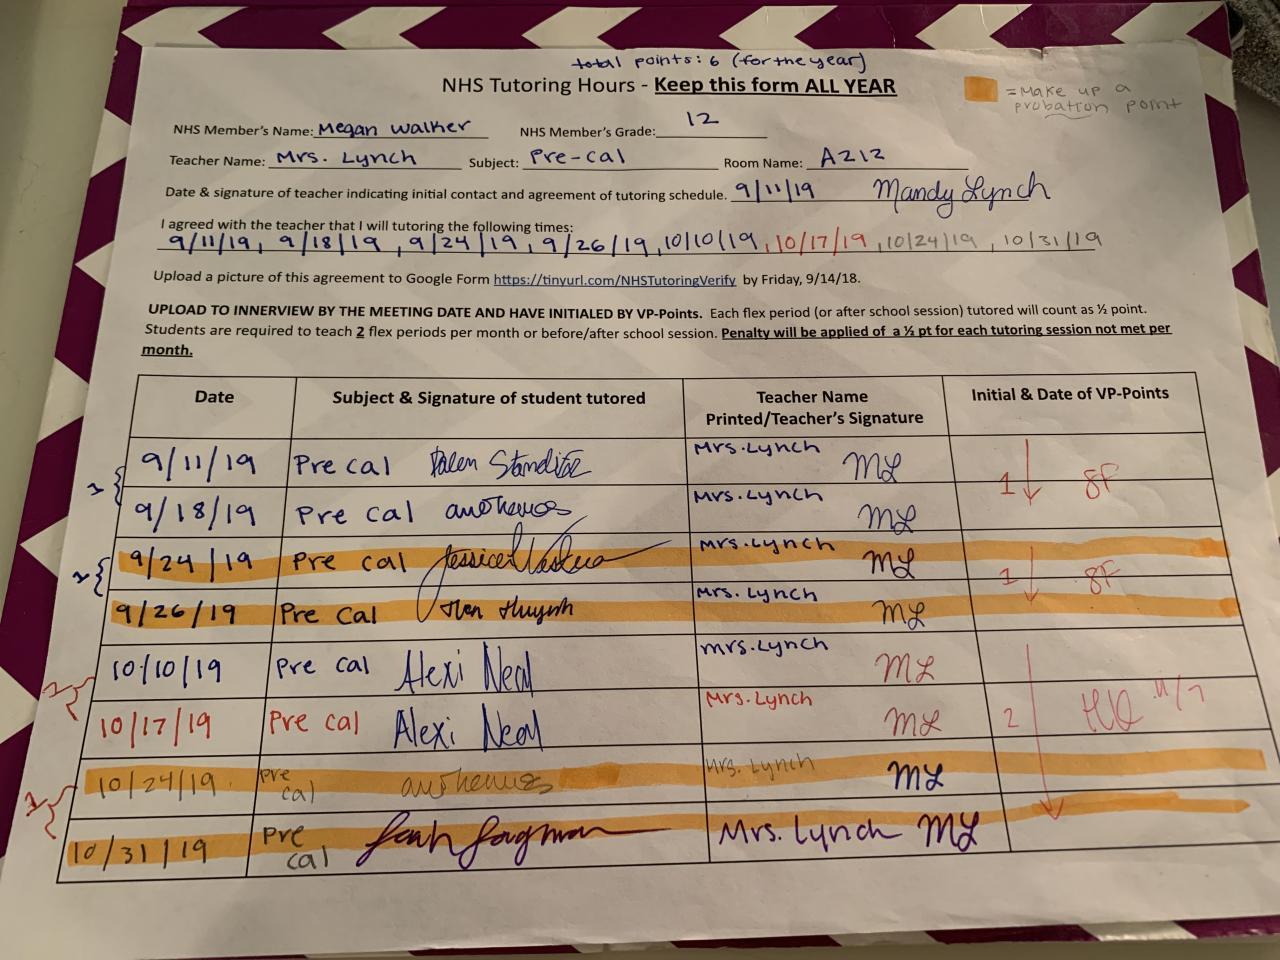 total points: 6 (for the year)
NHS Tutoring Hours - Keep this form ALL YEAR
= Make up a
probation point
NHS Member's Name: Megan Walker NHS Member's Grade: 12
Teacher Name: Mrs. Lynch Subject: Pre-cal Room Name: A212
Date & signature of teacher indicating initial contact and agreement of tutoring schedule. 9/11/19 Mandy Lynch
I agreed with the teacher that I will tutoring the following times:
9/11/19, 9/18/19, 9/24/19, 9/26/19, 10/10/19, 10/17/19, 10/24/19, 10/31/19
Upload a picture of this agreement to Google Form https://tinyurl.com/NHSTutoringVerify by Friday, 9/14/18.
UPLOAD TO INNERVIEW BY THE MEETING DATE AND HAVE INITIALED BY VP-Points. Each flex period (or after school session) tutored will count as ½ point.
Students are required to teach 2 flex periods per month or before/after school session. Penalty will be applied of a ½ pt for each tutoring session not met per
month.
Date Subject & Signature of student tutored Teacher Name Printed/Teacher's Signature Initial & Date of VP-Points
1 9/11/19 Pre cal Mrs. Lynch ML 1 SF
9/18/19 Pre cal Mrs. Lynch ML
1 9/24/19 Pre cal Mrs. Lynch ML 1 SF
9/26/19 Pre Cal Huynh Mrs. Lynch ML
1 10/10/19 Pre cal Alexi Neal Mrs. Lynch ML
10/17/19 Pre cal Alexi Neal Mrs. Lynch ML 2 11/7
1 10/24/19 pre cal Mrs. Lynch ML
10/31/19 pre cal Mrs. Lynch ML